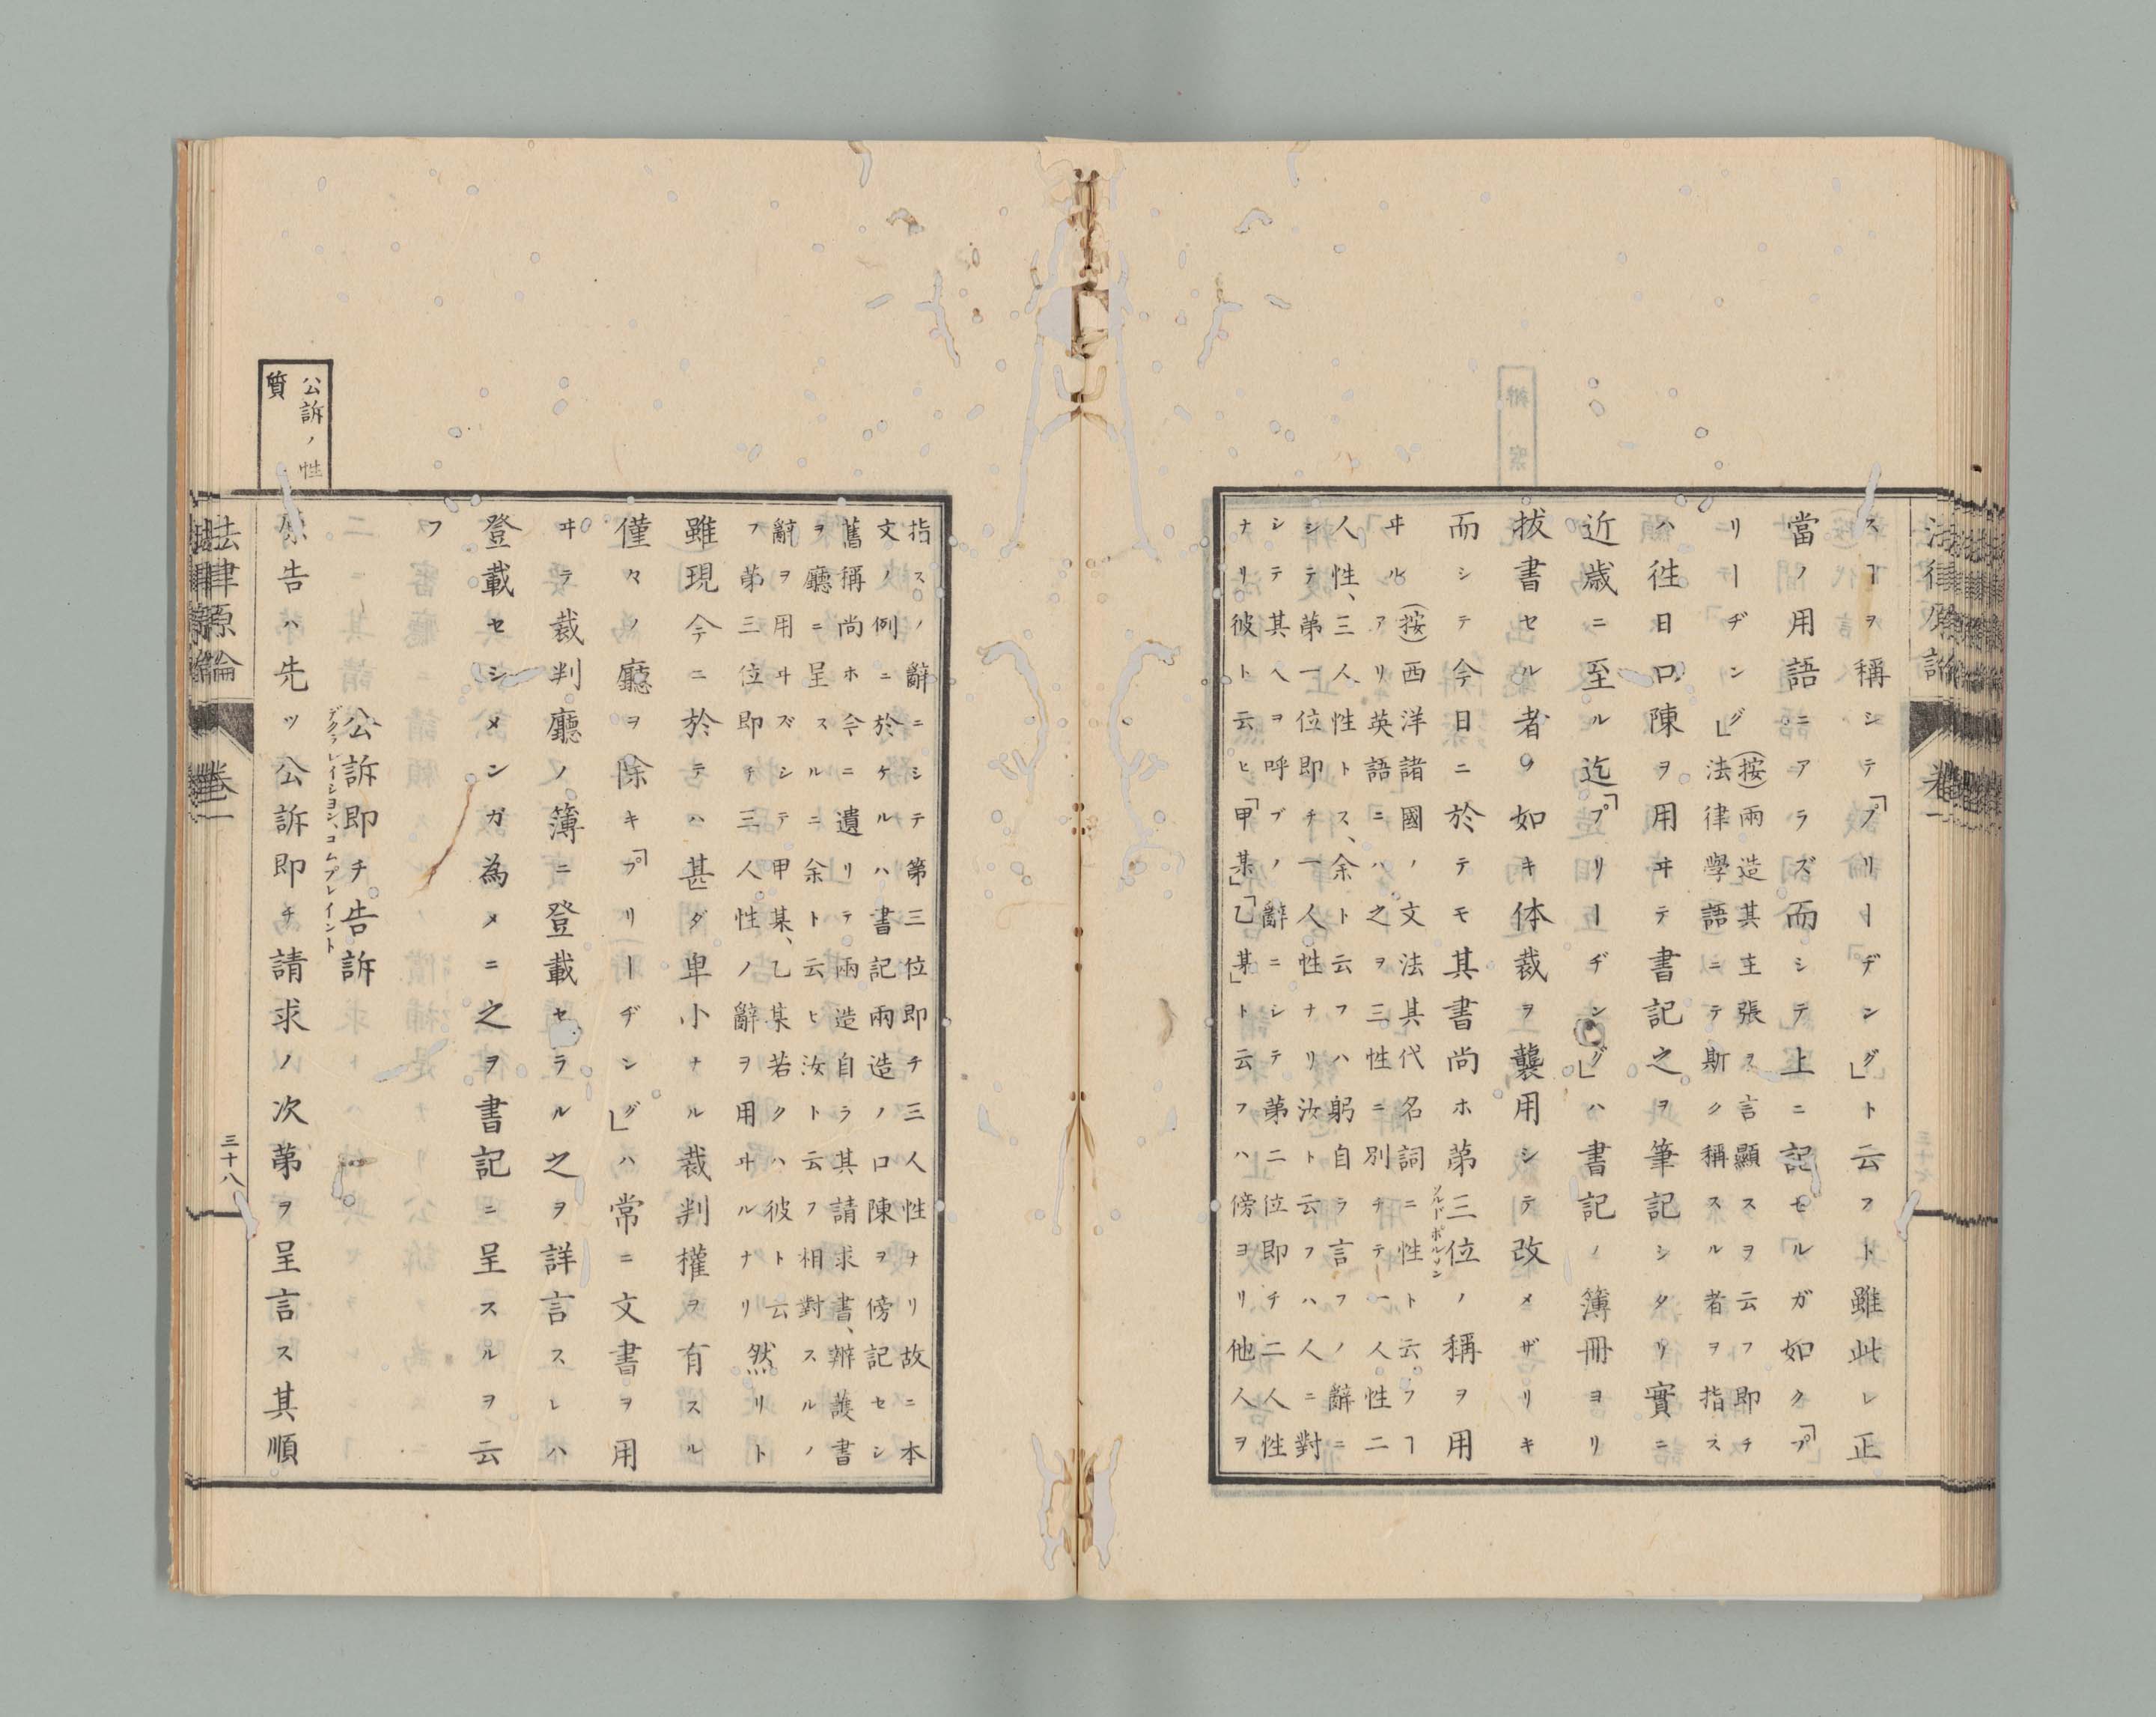 スヿヲ稱シテ「プリーヂング」ト云フト雖此レ正
當ノ用語ニアラズ而シテ上ニ記セルガ如ク「プ
リーヂング」
(按)兩造其主張ヲ言顯スヲ云フ即チ
法律學語ニテ斯ク稱スル者ヲ指ス
ハ徃日口陳ヲ用ヰテ書記之ヲ筆記シタリ實ニ
近歳ニ至ル迄「プリーヂング」ハ書記ノ簿冊ヨリ
拔書セル者ノ如キ体裁ヲ襲用シテ改メザリキ
而シテ今日ニ於テモ其書尚ホ第三位ノ稱ヲ用
ソルドポルソン
ヰル
(按)西洋諸國ノ文法其代名詞ニ性ト云フヿ
アリ英語ニハ之ヲ三性ニ別チテ一人性二
人性、三人性トス、余ト云フハ躬自ラ言フノ辭ニ
シテ第一位即チ一人性ナリ汝ト云フハ人ニ對
シテ其人ヲ呼ブノ辭ニシテ第二位即チ二人性
ナリ彼ト云ヒ「甲某」「乙某」ト云フハ傍ヨリ他人ヲ
三十七
公訴ノ性
質
指スノ辭ニシテ第三位即チ三人性ナリ故ニ本
文ノ例ニ於ケルハ書記兩造ノ口陳ヲ傍記セシ
舊稱尚ホ今ニ遺リテ兩造自ラ其請求書、辨護書
ヲ廳ニ呈スルニ余ト云ヒ汝ト云フ相對スルノ
辭ヲ用ヰズシテ甲某、乙某若クハ彼ト云
フ第三位即チ三人性ノ辭ヲ用ヰルナリ
然リト
雖現今ニ於テハ甚ダ卑小ナル裁判權ヲ有スル
僅々ノ廳ヲ除キ「プリーヂング」ハ常ニ文書ヲ用
ヰテ裁判廳ノ簿ニ登載セラル之ヲ詳言スレハ
登載セシメンガ為メニ之ヲ書記ニ呈スルヲ云
フ
公訴即チ告訴
デクラレイシヨン、コムプレイント
原告ハ先ツ公訴即チ請求ノ次第ヲ呈言ス其順
法律原論
卷一
三十八